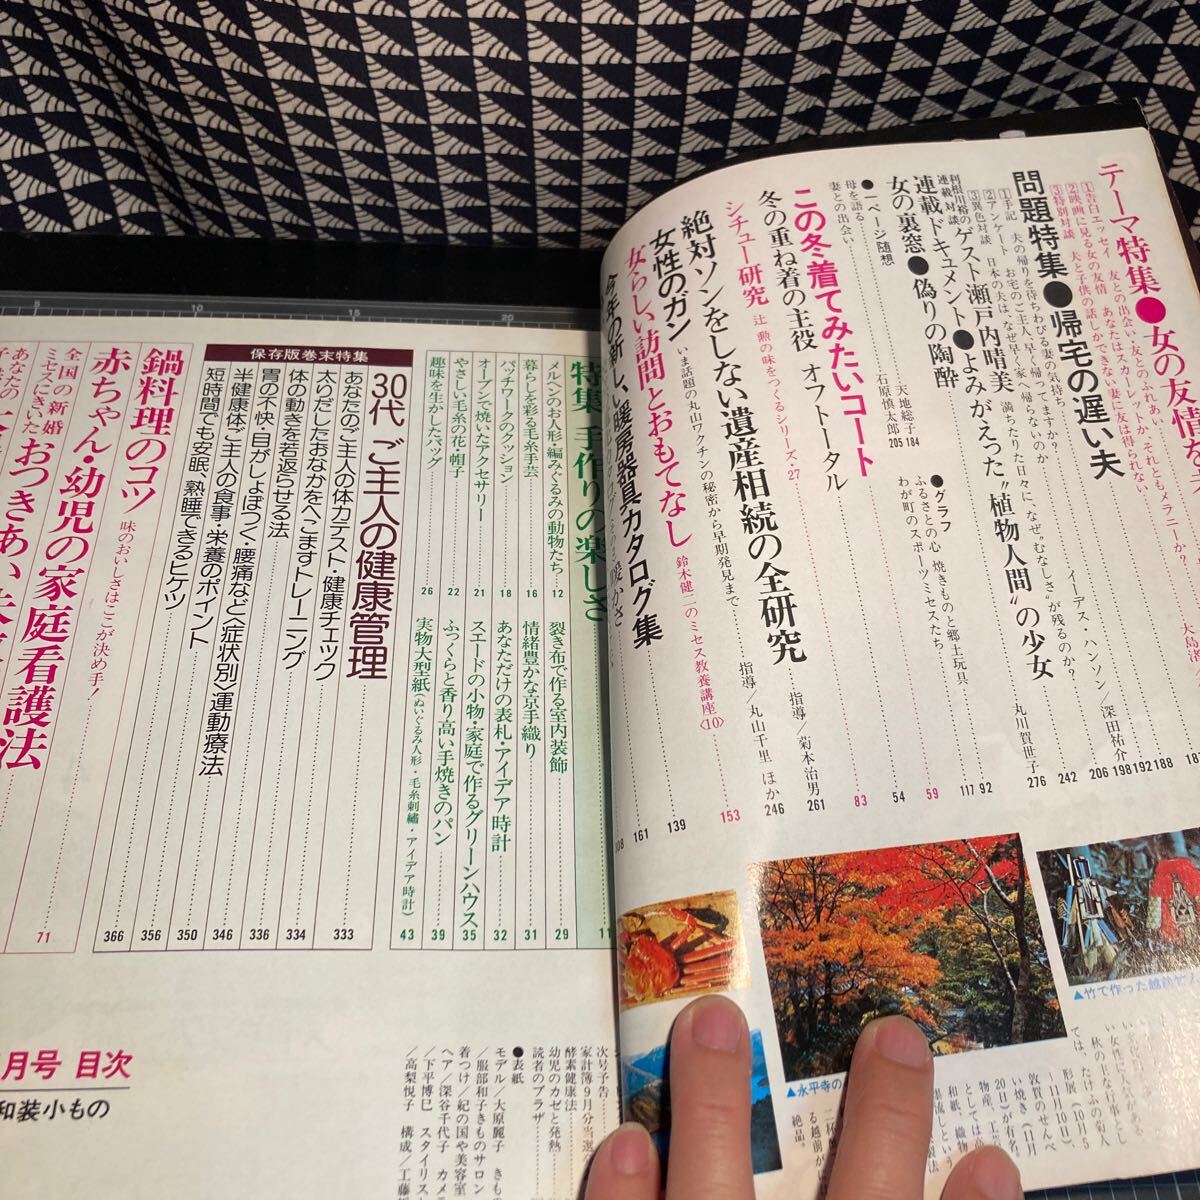 テーマ特集●女の友情を
①告白エッセイ 友との出会い・友とのふれあい
②映画に見る女の友情 あなたはスカーレットか、それともメラニーか?
③特別対談 夫と子供の話しかできない妻に友は得られない
大島渚
187
問題特集●帰宅の遅い夫
①手記 夫の帰りを待ちわびる妻の気持ち 188
②アンケート お宅のご主人、早く帰ってますか? 192
③異色対談 日本の夫は、なぜ早く家へ帰らないのか
イーデス ハンソン/深田祐介 198
満ちたりた日々に、なぜ“むなしさ”が残るのか? 206
利根川裕の連載対談 ゲスト瀬戸内晴美 242
連載ドキュメント●よみがえった“植物人間”の少女 丸川賀世子 276
女の裏窓●偽りの陶酔 92
117
●グラフ
ふるさとの心 焼きものと郷土玩具 59
わが町のスポーツ・ミセスたち 54
●一ページ随想
母を語る 天地総子 184
妻との出会い 石原慎太郎 205
この冬着てみたいコート 83
冬の重ね着の主役 オフトータル
シチュー研究 辻勲の味をつくるシリーズ・27
絶対ソンをしない遺産相続の全研究 指導/菊本治男 261
女性のガン いま話題の丸山ワクチンの秘密から早期発見まで 指導/丸山千里 ほか 246
女らしい訪問とおもてなし 鈴木健二のミセス教養講座〈10〉 153
今年の新しい暖房器具カタログ集 139
161
108
特集 手作りの楽しさ 11
メルヘンのお人形・編みぐるみの動物たち 12
暮らしを彩る毛糸手芸 16
パッチワークのクッション 18
オーブンで焼いたアクセサリー 21
やさしい毛糸の花帽子 22
趣味を生かしたバッグ 26
裂き布で作る室内装飾 29
情緒豊かな京手織り 31
あなただけの表札・アイデア時計 32
スエードの小物・家庭で作るグリーンハウス 35
ふっくらと香り高い手焼きのパン 39
実物大型紙(ぬいぐるみ人形・毛糸刺繡・アイデア時計) 43
保存版巻末特集
30代 ご主人の健康管理
あなたのご主人の体力テスト・健康チェック 333
太りだしたおなかをへこますトレーニング 334
体の動きを若返らせる法 336
胃の不快・目がしょぼつく・腰痛など〈症状別〉運動療法 346
半健康体ご主人の食事・栄養のポイント 350
短時間でも安眠、熟睡できるヒケツ 356
366
鍋料理のコツ 味のおいしさはここが決め手!
赤ちゃん・幼児の家庭看護法
全国の新婚ミセスにきいた おつきあい
あなたの
71
月号 目次
和装小もの
次号予告
家計簿9月分当選
酵素健康法
幼児のカゼと発熱
読者のプラザ
●表紙
モデル/大原麗子 きも
/服部和子きものサロン
着つけ/紀の国や美容室
ヘア/深谷千代子 カメラ
/下平博巳 スタイリスト
/高梨悦子 構成/工藤
▲竹で作った越前
▲永平寺の
5
10
15
20